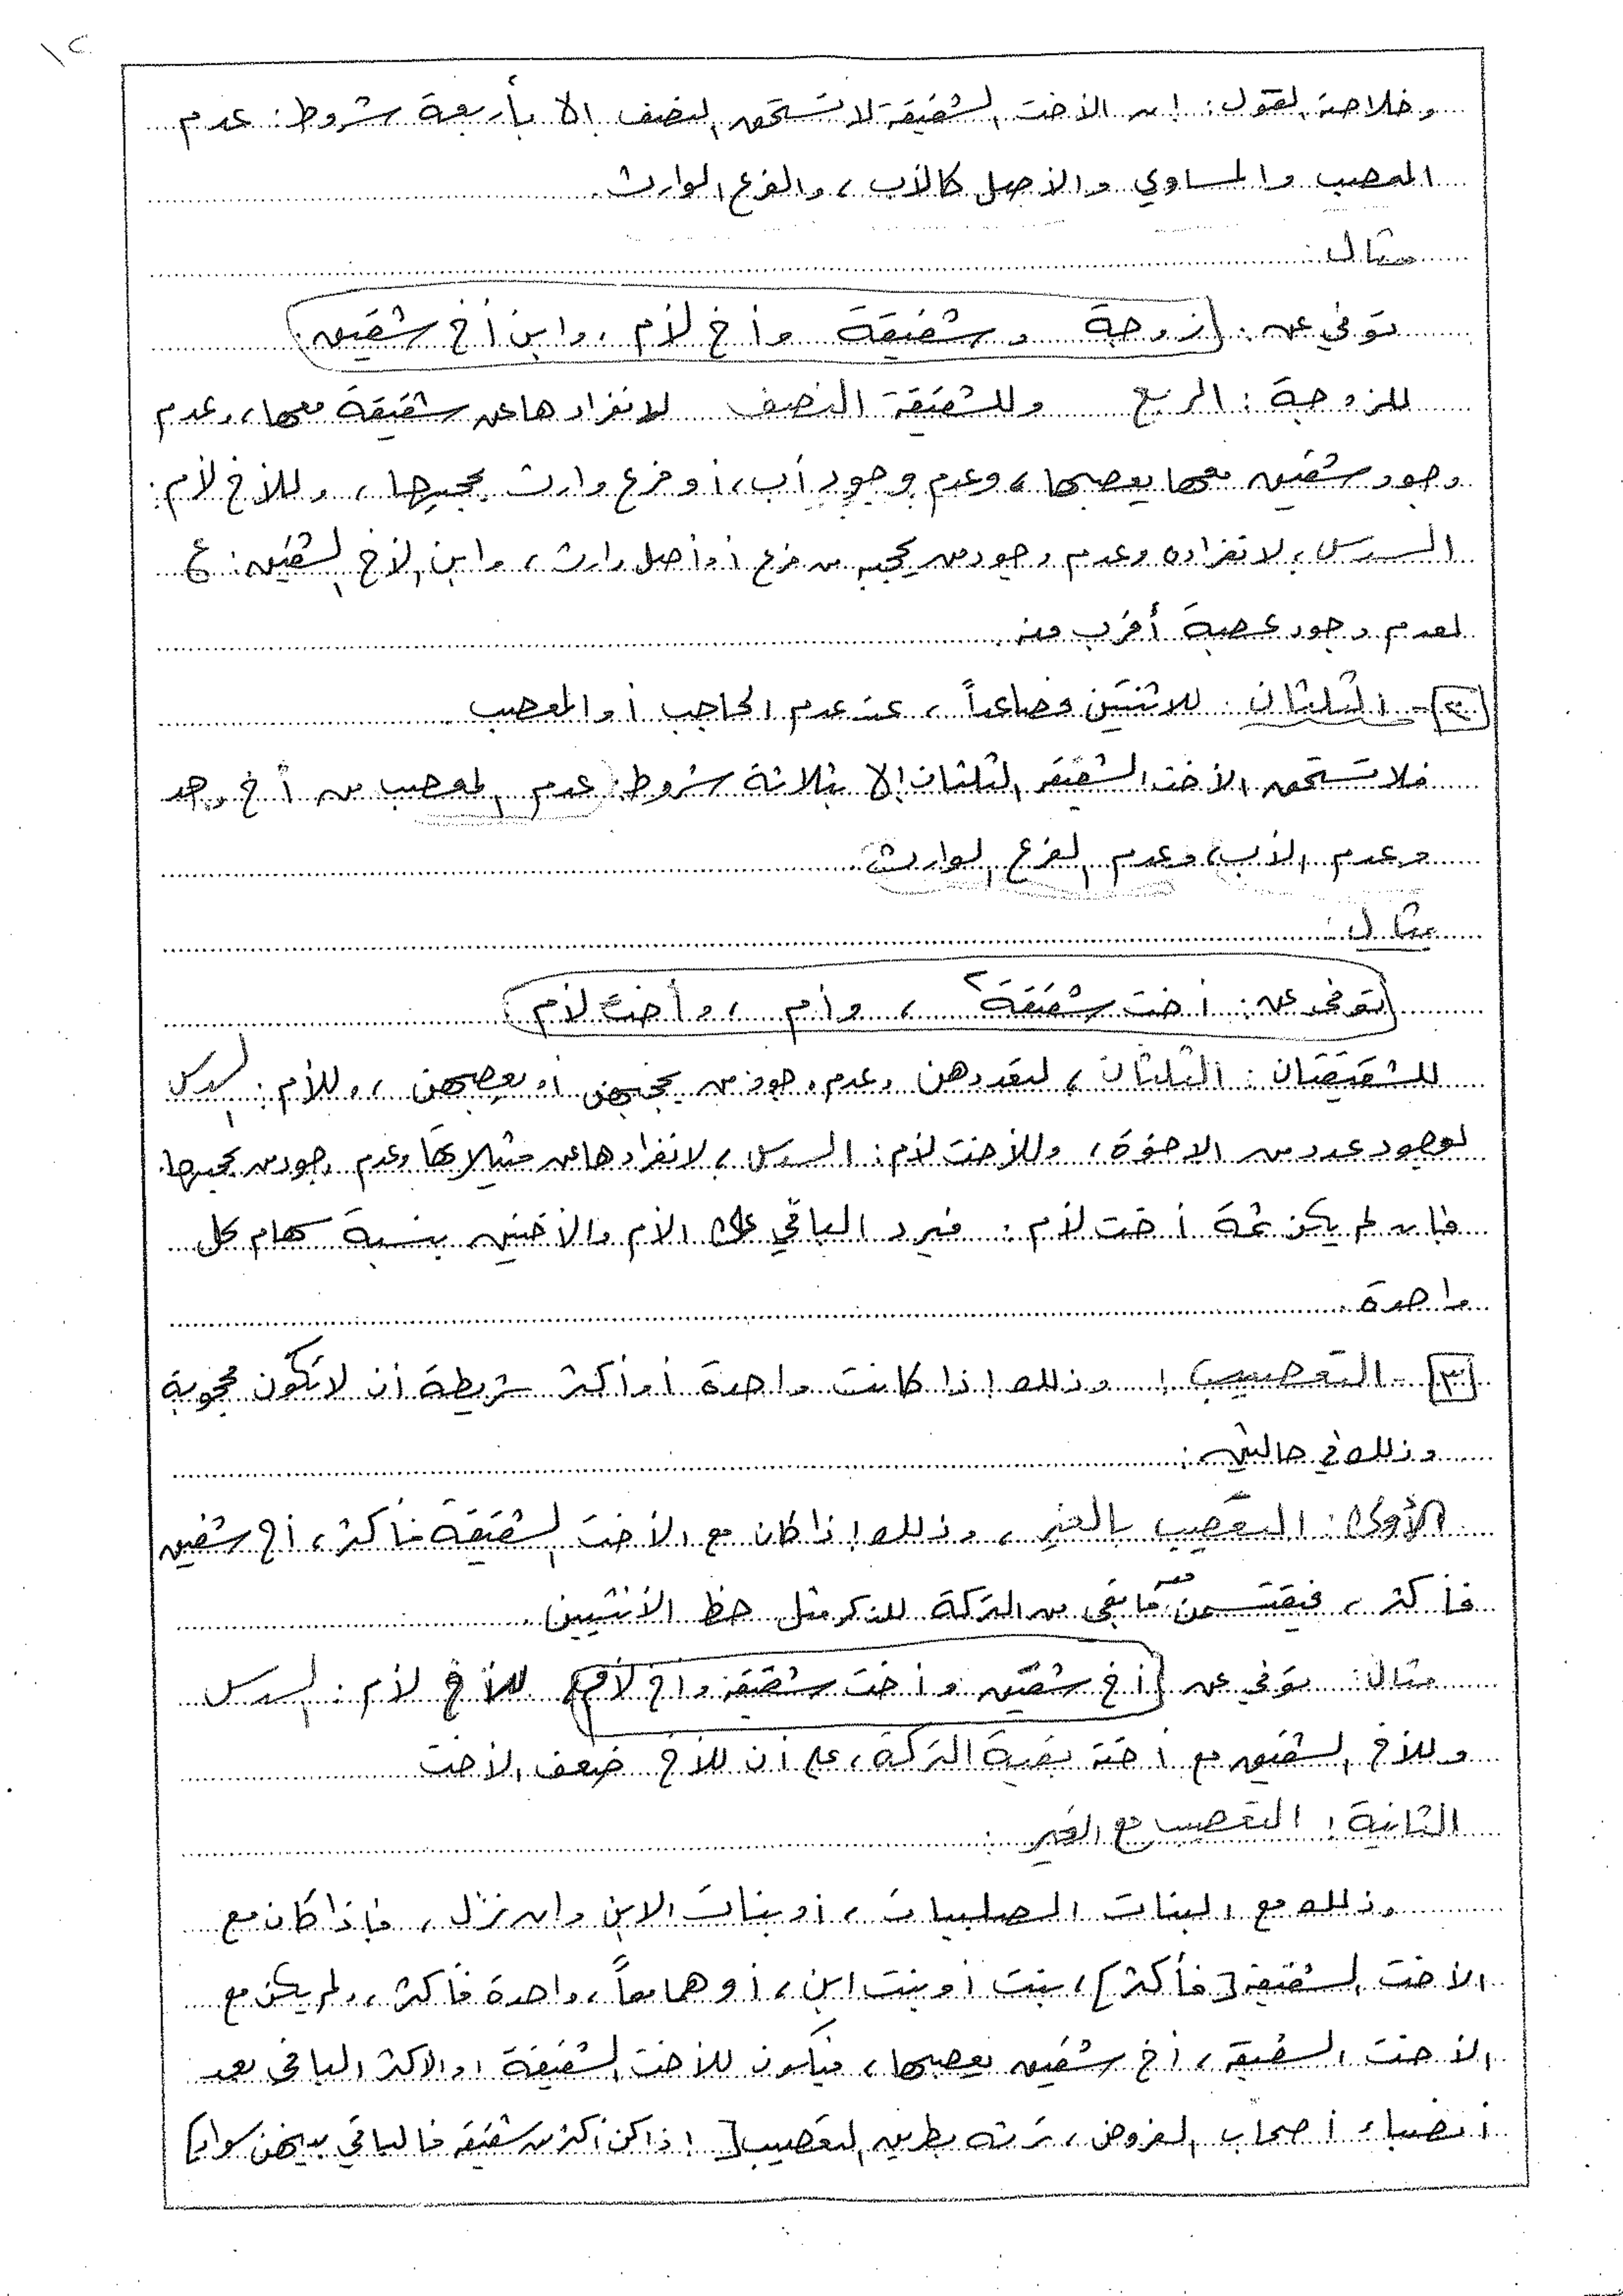 ١٢
وخلاصة القول: إن الأخت الشقيقة لا تستحق النصف إلا بأربعة شروط: عدم
المعصب والمساوي والأصل كالأب، والفرع الوارث.
مثال:
توفي عن: (زوجة وشقيقة وأخ لأم، وابن أخ شقيق)
للزوجة: الربع وللشقيقة النصف لانفرادها عن شقيقة معها، وعدم
وجود شقيق معها يعصبها، وعدم وجود أب، أو فرع وارث يحجبها، وللأخ لأم:
السدس، لانفراده وعدم وجود من يحجبه من فرع أو أصل وارث، وابن الأخ الشقيق: ع
لعدم وجود عصبة أقرب منه.
[٢]- الثلثان: للاثنتين فصاعداً، عند عدم الحاجب أو المعصب.
فلا تستحق الأخت الشقيقة الثلثان إلا بثلاثة شروط: عدم المعصب من أخ وجد
وعدم الأب، وعدم الفرع الوارث.
مثال:
(توفي عن: أخت شقيقة ٢، وأم، وأخت لأم)
للشقيقتان: الثلثان، لتعددهن وعدم وجود من يحجبهن أو يعصبهن، وللأم: السدس
لوجود عدد من الإخوة، وللأخت لأم: السدس، لانفرادها عن مثيلاتها وعدم وجود من يحجبها.
فإن لم يكن ثمة أخت لأم: فيرد الباقي على الأم والأختين بنسبة سهام كل
واحدة.
[٣]- التعصيب: وذلك إذا كانت واحدة أو أكثر شريطة أن لا تكون محجوبة
وذلك في حالتين:
الأولى: التعصيب بالغير، وذلك إذا كان مع الأخت الشقيقة فأكثر، أخ شقيق
فأكثر، فيقتسمن ما بقي من التركة للذكر مثل حظ الأنثيين.
مثال: توفي عن (أخ شقيق وأخت شقيقة وأخ لأم) للأخ لأم: السدس
وللأخ الشقيق مع أخته بقية التركة، على أن للأخ ضعف الأخت
الثانية: التعصيب مع الغير:
وذلك مع البنات الصلبيات، أو بنات الابن وإن نزل، فإذا كان مع
الأخت الشقيقة [فأكثر]، بنت أو بنت ابن، أو هما معاً، واحدة فأكثر، ولم يكن مع
الأخت الشقيقة، أخ شقيق يعصبها، فيكون للأخت الشقيقة أو الأكثر الباقي بعد
أنصباء أصحاب الفروض، ترثه بطريق التعصيب [إذا كن أكثر من شقيقة فالباقي بينهن سواء]